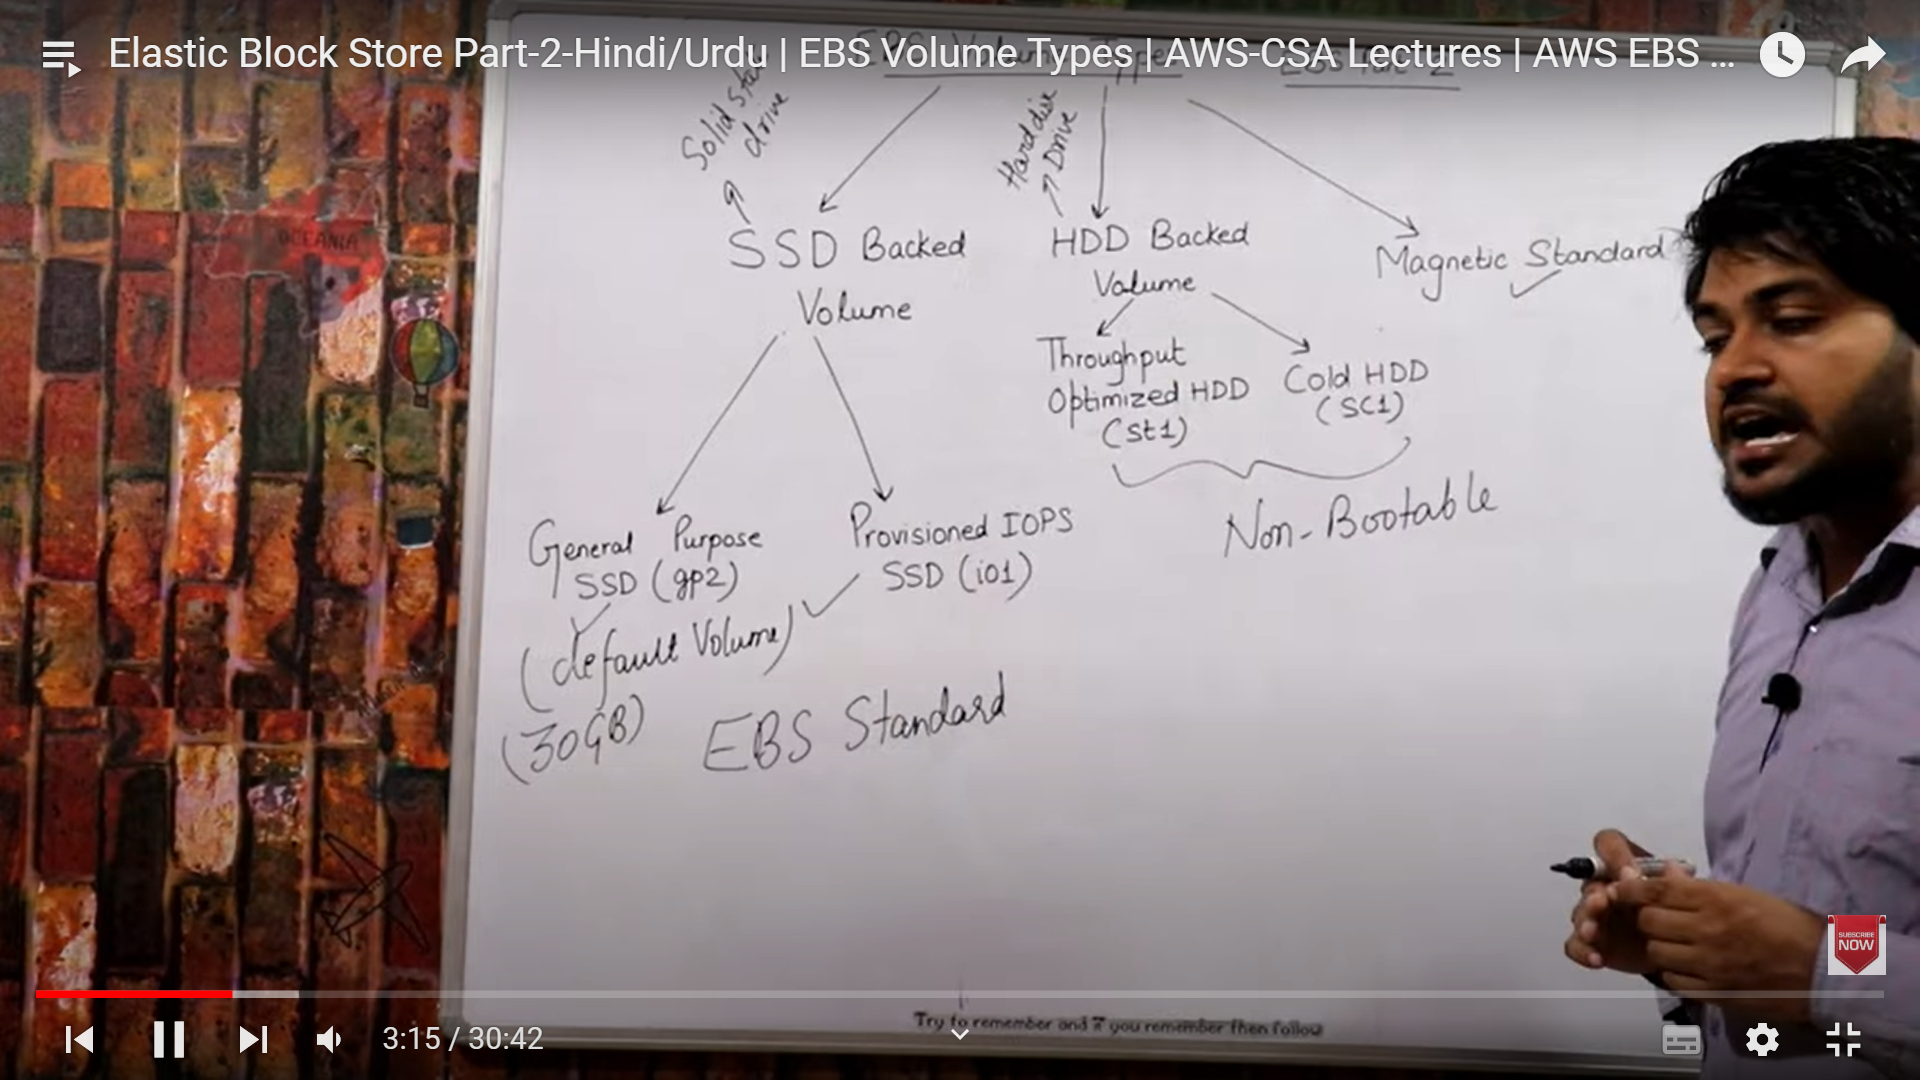 Elastic Block Store Part-2-Hindi/Urdu | EBS Volume Types | AWS-CSA Lectures | AWS EBS ...
EBS Volume Types
EBS
Solid State
drive
Hard disk
Drive
SSD Backed
Volume
HDD Backed
Volume
Magnetic Standard
Throughput
Optimized HDD
(st1)
Cold HDD
(SC1)
Non-Bootable
General Purpose
SSD (gp2)
(default Volume)
(30GB)
Provisioned IOPS
SSD (io1)
EBS Standard
OCEANIA
SUBSCRIBE
NOW
Try to remember and if you remember then follow
3:15 / 30:42